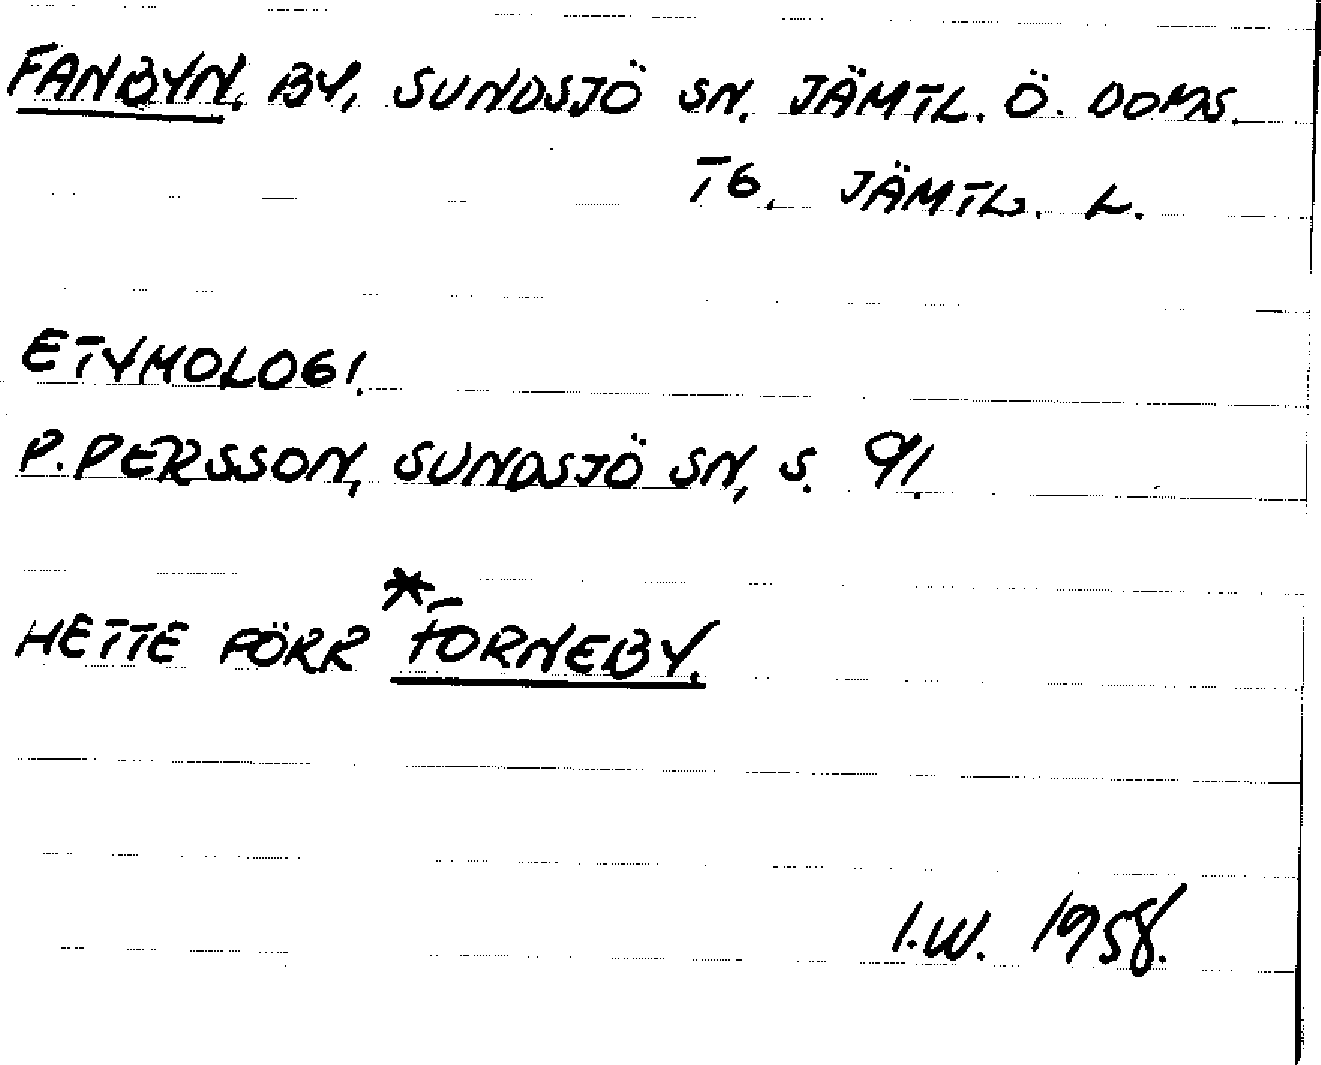 FANBYN, BY, SUNDSJÖ SN. JÄMTL. Ö. DOMS.
TG. JÄMTL. L.
ETYMOLOGI.
P. PERSSON, SUNDSJÖ SN, S. 91.
HETTE FÖRR *FORNEBY.
I.W. 1958.